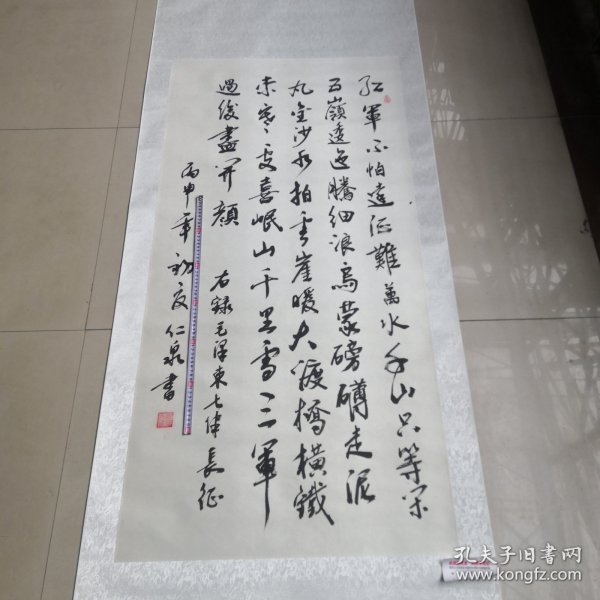 红軍不怕遠征難萬水千山只等闲
五嶺逶迤騰细浪烏蒙磅礴走泥
丸金沙水拍雲崖暖大渡橋橫鐵
索寒更喜岷山千里雪三軍
過後盡開顔
右錄毛澤東七律長征
丙申年初夏仁泉書
孔夫子旧書网
www.kongfz.com